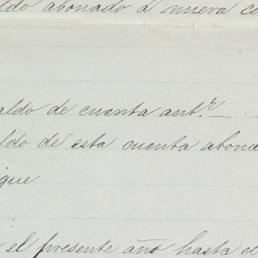 ldo abonado a nueva c
aldo de cuenta antr.
ldo de esta cuenta abon
que
el presente año hasta el